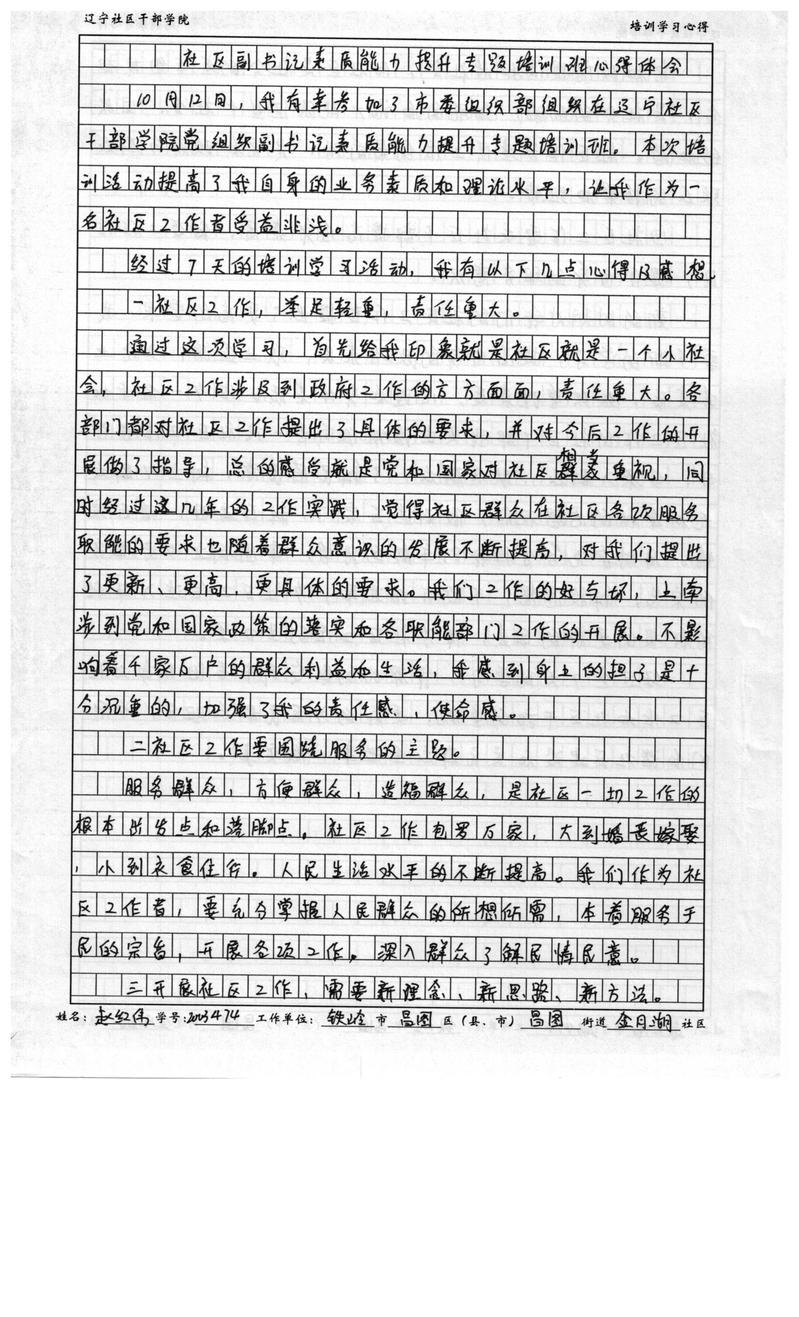 辽宁社区干部学院
培训学习心得
社区副书记素质能力提升专题培训班心得体会
10月12日，我有幸参加了市委组织部组织在辽宁社区
干部学院党组织副书记素质能力提升专题培训班，本次培
训活动提高了我自身的业务素质和理论水平，让我作为一
名社区工作者受益非浅。
经过7天的培训学习活动，我有以下几点心得及感想
一社区工作，举足轻重，责任重大。
通过这次学习，首先给我印象就是社区就是一个小社
会，社区工作涉及到政府工作的方方面面，责任重大。各
部门都对社区工作提出了具体的要求，并对今后工作的开
展做了指导，总的感受就是党和国家对社区相当重视，同
时经过这几年的工作实践，觉得社区群众在社区各项服务
职能的要求也随着群众意识的发展不断提高，对我们提出
了更新、更高、更具体的要求。我们工作的好与坏，上牵
涉到党和国家政策的落实和各职能部门工作的开展。不影
响着千家万户的群众利益和生活，我感到身上的担子是十
分沉重的，加强了我的责任感、使命感。
二社区工作要围绕服务的主题。
服务群众，方便群众，造福群众，是社区一切工作的
根本出发点和落脚点。社区工作包罗万家，大到婚丧嫁娶
，小到衣食住行。人民生活水平的不断提高。我们作为社
区工作者，要充分掌握人民群众的所想所需，本着服务于
民的宗旨，开展各项工作。深入群众了解民情民意。
三开展社区工作，需要新理念、新思路、新方法。
姓名：赵红伟 学号：2003474 工作单位：铁岭 市 昌图 区（县、市） 昌图 街道 金月湖 社区